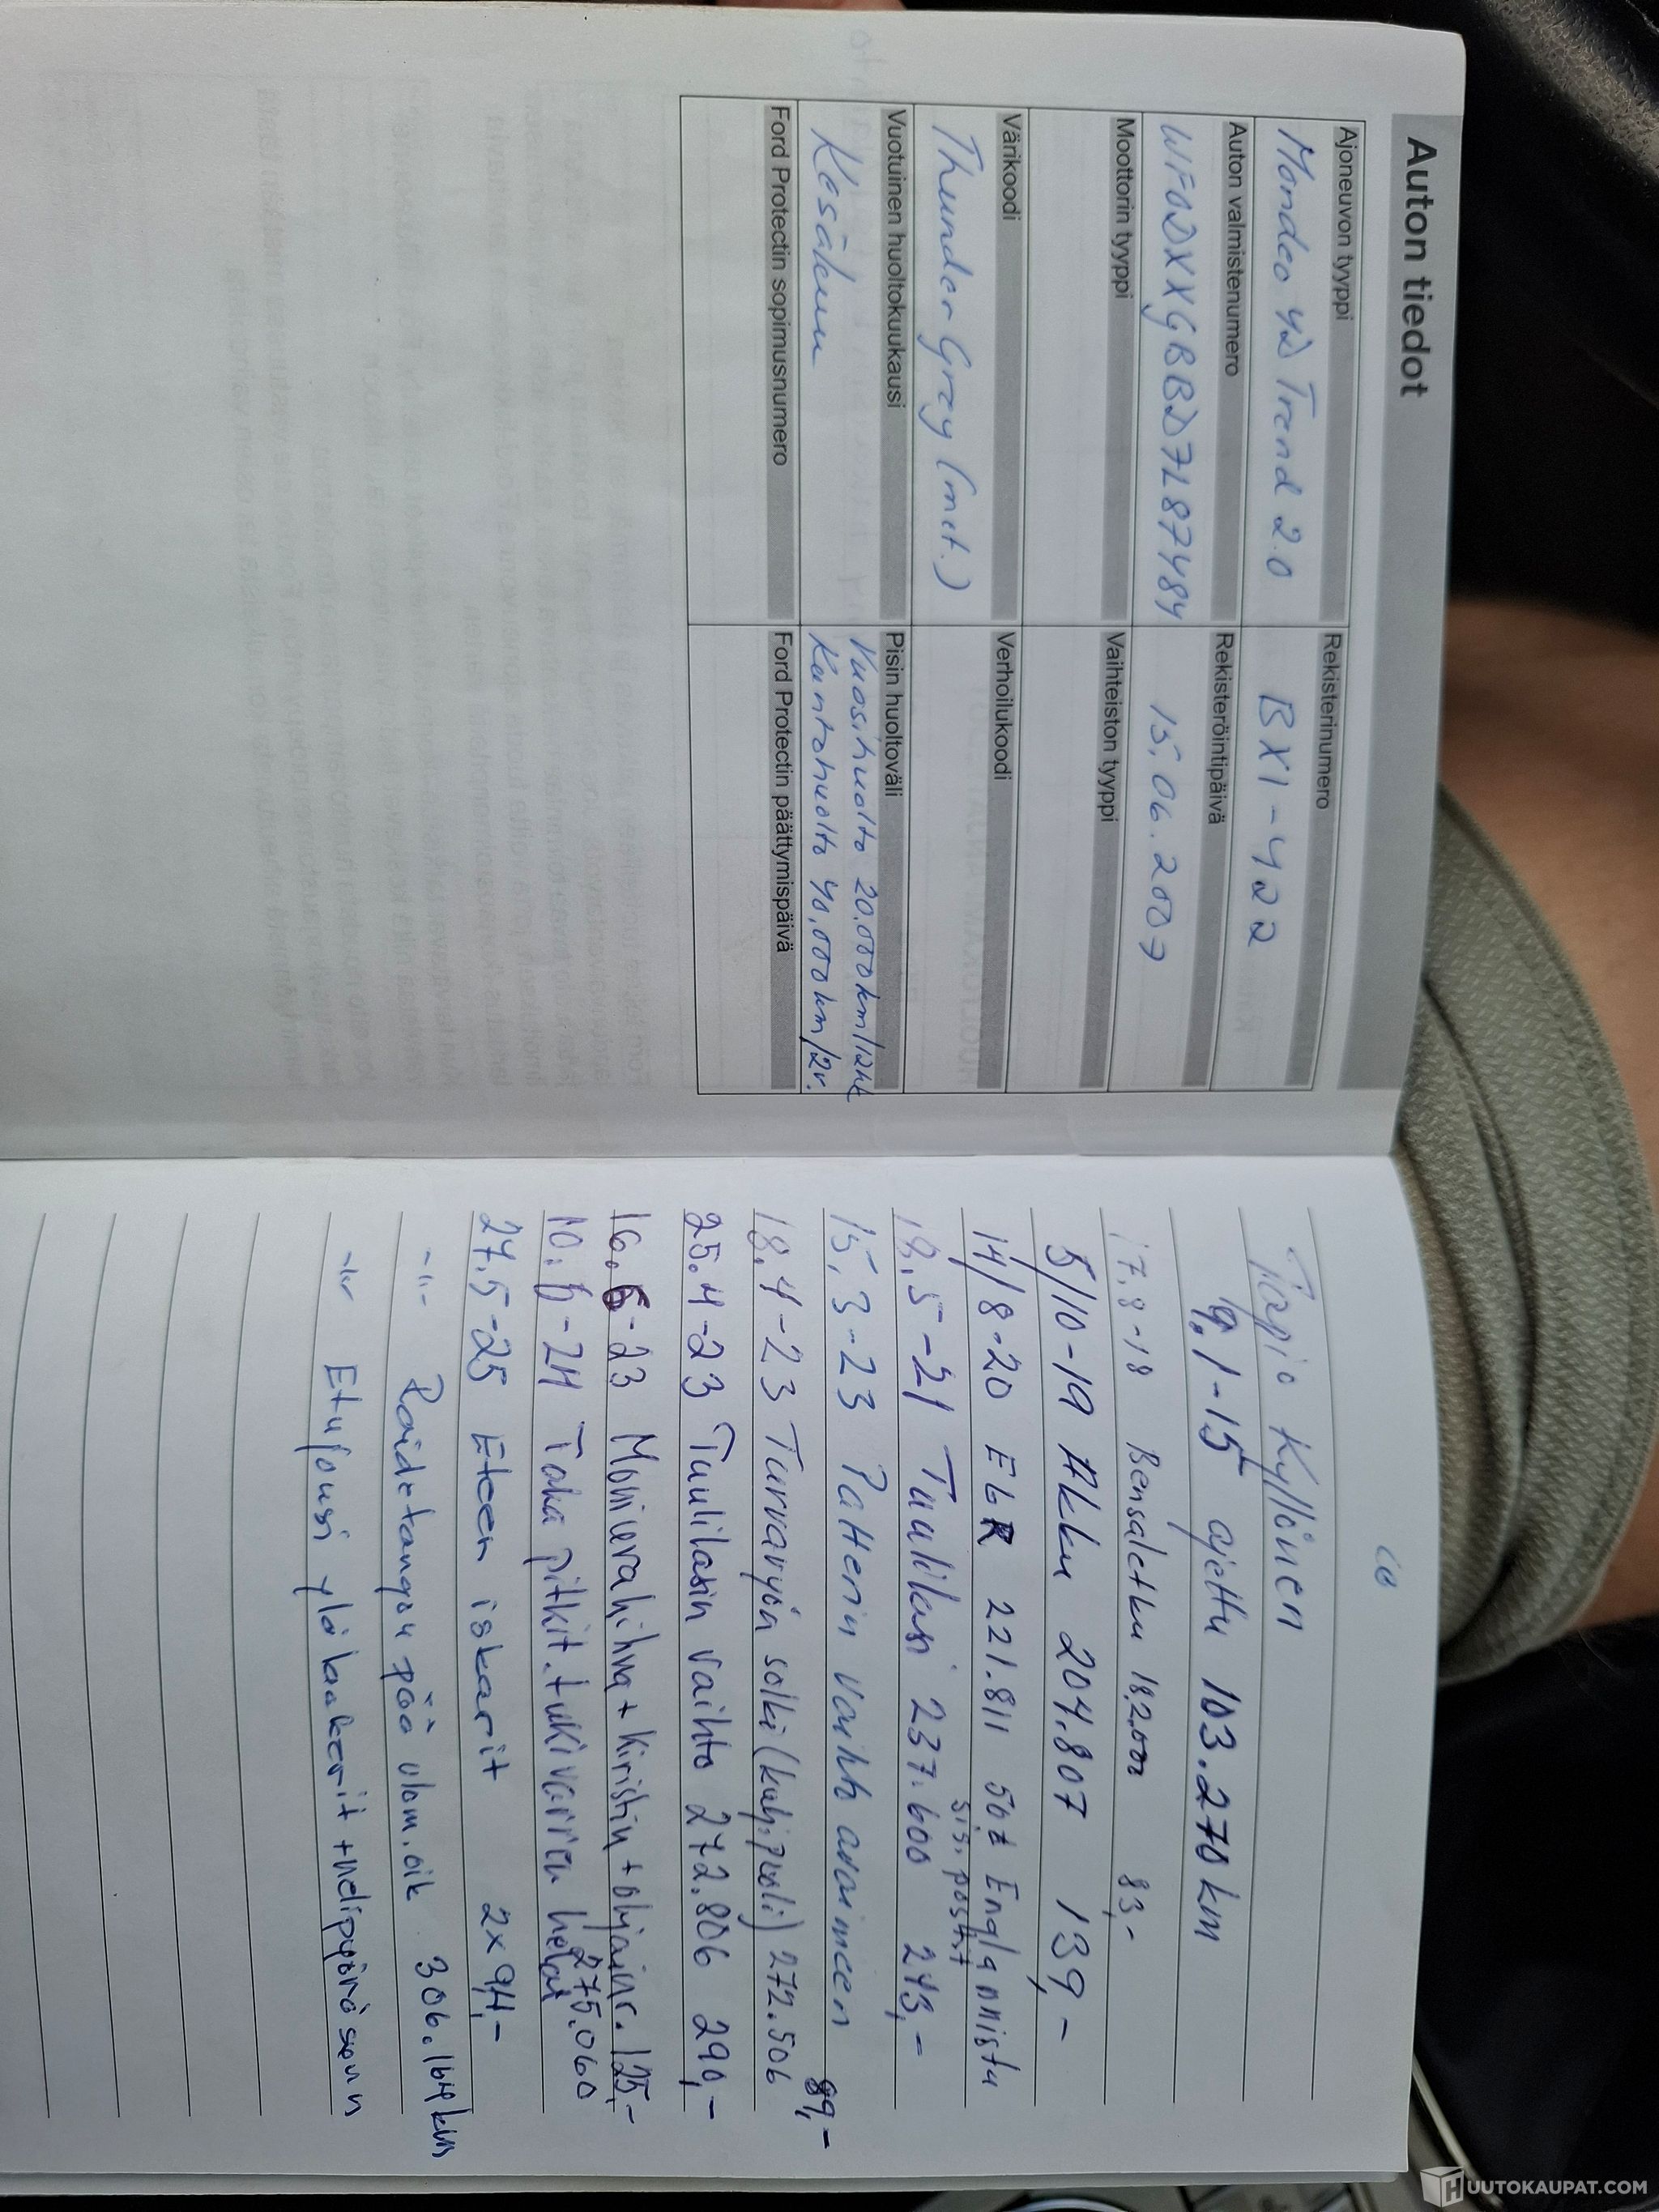 Auton tiedot
Ajoneuvon tyyppi
Rekisterinumero
Mondeo 4D Trend 2.0
BXI-422
Auton valmistenumero
Rekisteröintipäivä
WF0DXXGBBD7L87484
15.06.2007
Moottorin tyyppi
Vaihteiston tyyppi
Värikoodi
Verhoilukoodi
Thunder Grey (met.)
Vuotuinen huoltokuukausi
Pisin huoltoväli
Kesäkuu
Vuosihuolto 20.000km/12kk
Kantahuolto 40.000km/2v.
Ford Protectin sopimusnumero
Ford Protectin päättymispäivä
Tapio Kyllönen
9.1-15 ajettu 103.270 km
17.8-18 Bensaletku 182.000 83,-
5/10-19 Akku 204.807 139,-
14/8-20 EGR 221.811 50£ Englannista
sis. postit
19.5-21 Tuulilasi 237.600 243,-
15.3-23 Patterin vaihto avaimeen
89,-
18.4-23 Turvavyön solki (kulj.puoli) 272.506
25.4-23 Tuulilasin vaihto 272.806 290,-
16.6-23 Moniurahihna + kiristin + ohjainr. 125,-
10.6-24 Taka pitkit.tukivarren helat 275.060
27.5-25 Eteen iskarit 2x94,-
-"- Raidetangon pää ulom.oik 306.164km
-"- Etujousi ylälaakerit + nelipyöräsuun
HUUTOKAUPAT.COM